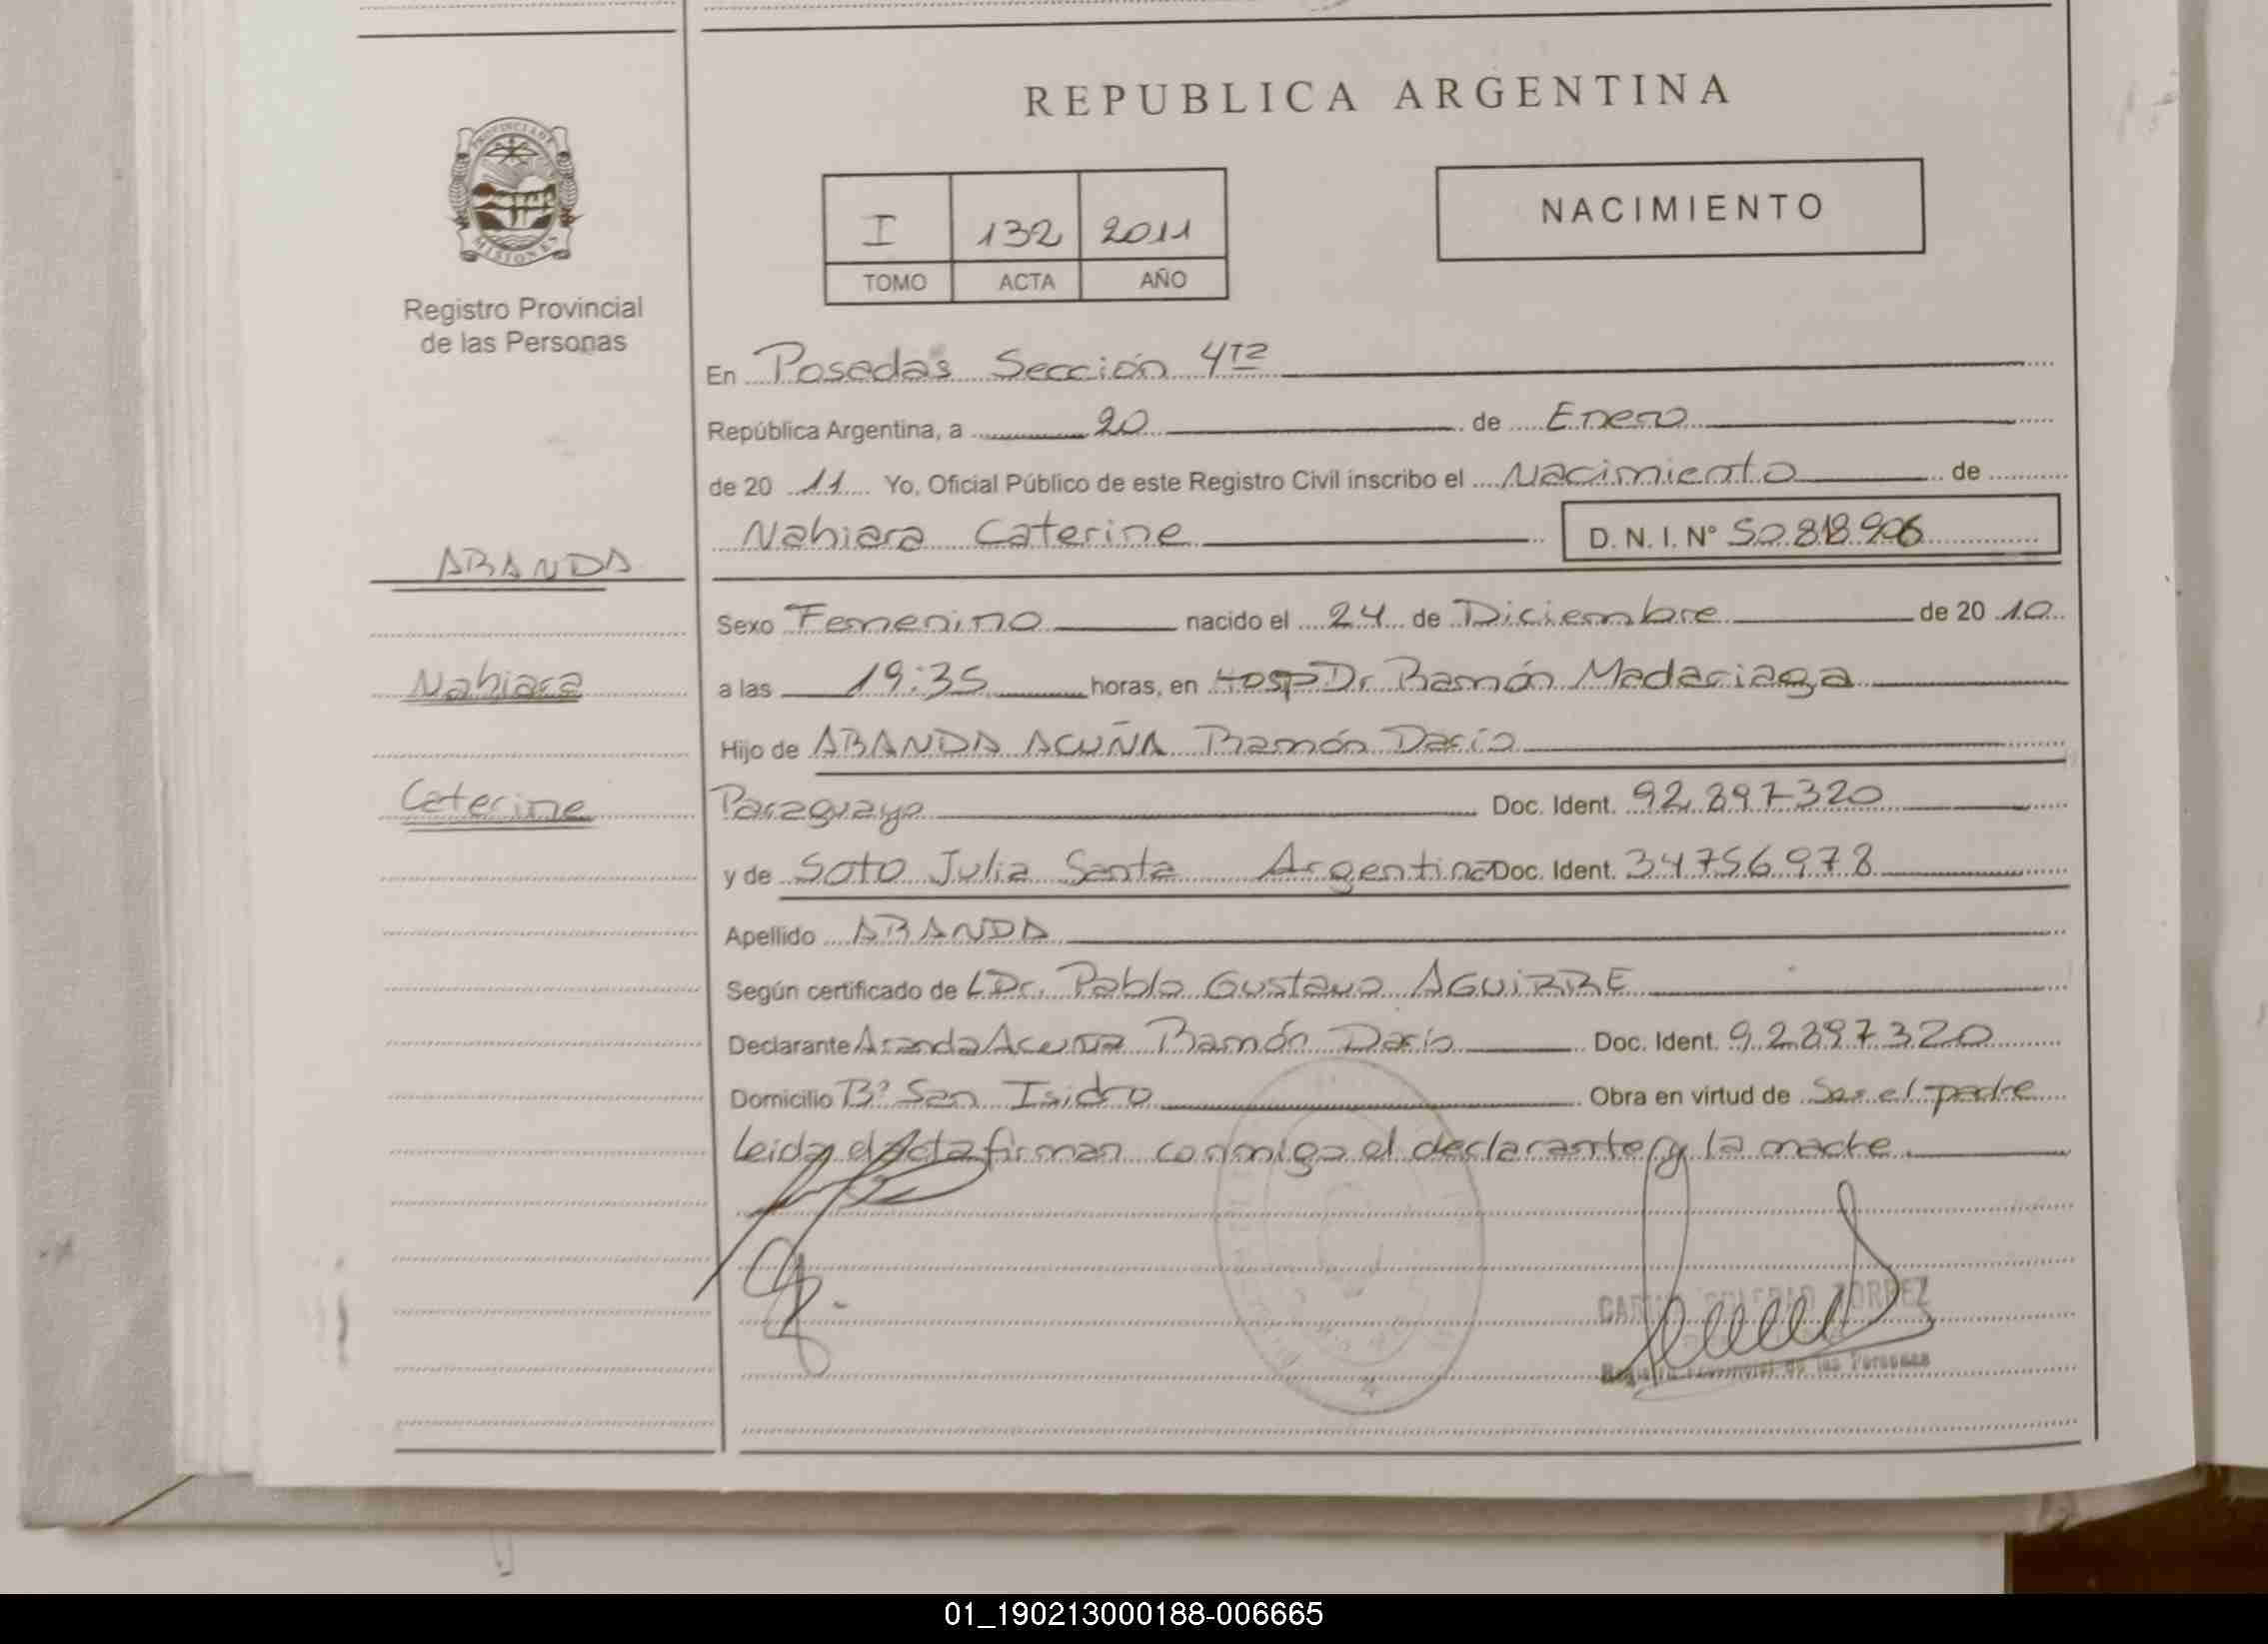 REPUBLICA ARGENTINA
PROVINCIA DE
MISIONES
Registro Provincial
de las Personas
I 132 2011
TOMO ACTA AÑO
NACIMIENTO
En Posadas Sección 4ta
República Argentina, a 20 de Enero
de 20 11 Yo, Oficial Público de este Registro Civil inscribo el Nacimiento de
Nahiara Caterine D. N. I. N° 50.818.906
ARANDA
Nahiara
Caterine
Sexo Femenino nacido el 24 de Diciembre de 20 10
a las 19:35 horas, en Hosp Dr. Ramón Madariaga
Hijo de ARANDA ACUÑA Ramón Darío
Paraguayo Doc. Ident. 92.897320
y de Soto Julia Santa Argentina Doc. Ident. 34756978
Apellido ARANDA
Según certificado de Dr. Pablo Gustavo AGUIRRE
Declarante Aranda Acuña Ramón Darío Doc. Ident. 92897320
Domicilio B° San Isidro Obra en virtud de Ser el padre
Leida el Acta firman conmigo el declarante y la madre
TORREZ
Registro Provincial de las Personas
01_190213000188-006665